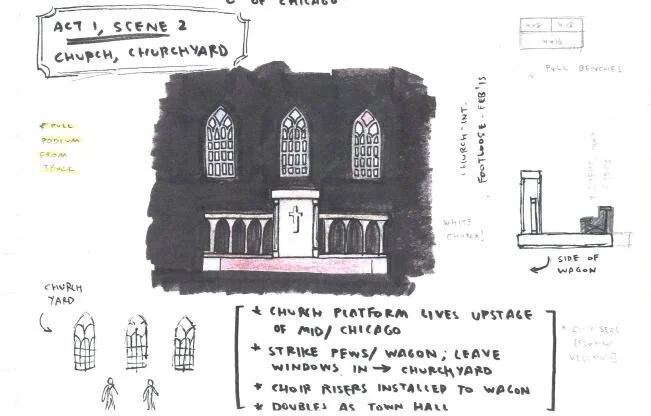 OF CHICAGO
ACT 1, SCENE 2
CHURCH, CHURCHYARD
4x8 4x8
4x16
PULL BENCHES
* PULL
PODIUM
FROM
TRUCK
CHURCH - INT.
FOOTLOOSE - FEB '15
WHITE
CHURCH!
SIDE OF
WAGON
CHURCH
YARD
* CHURCH PLATFORM LIVES UPSTAGE
OF MID/ CHICAGO
* STRIKE PEWS/ WAGON; LEAVE
WINDOWS IN → CHURCHYARD
* CHOIR RISERS INSTALLED TO WAGON
* DOUBLES AS TOWN HALL
* CITY SEAL